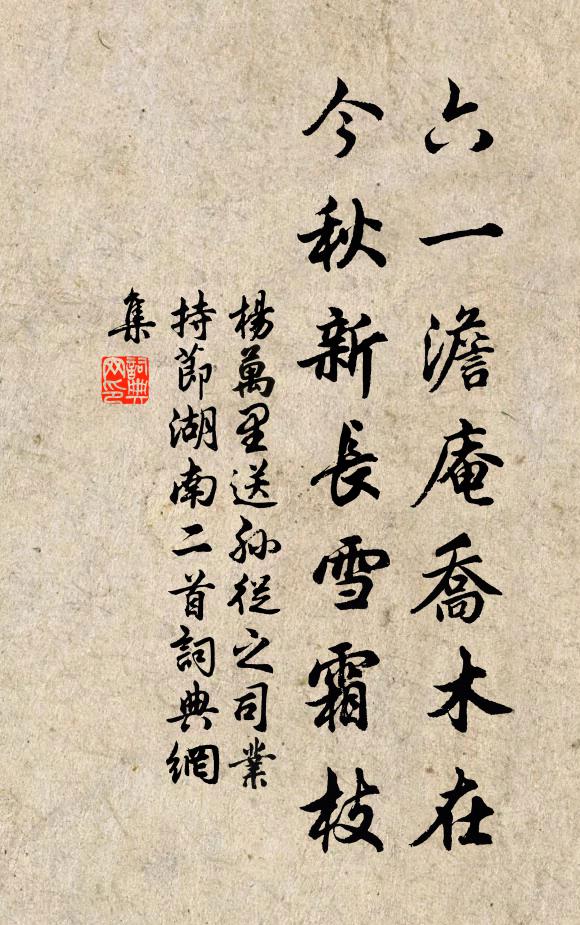 六一澹庵喬木在
今秋新長雪霜枝
楊萬里送孫從之司業
持節湖南二首詞典網
集
詞典網印